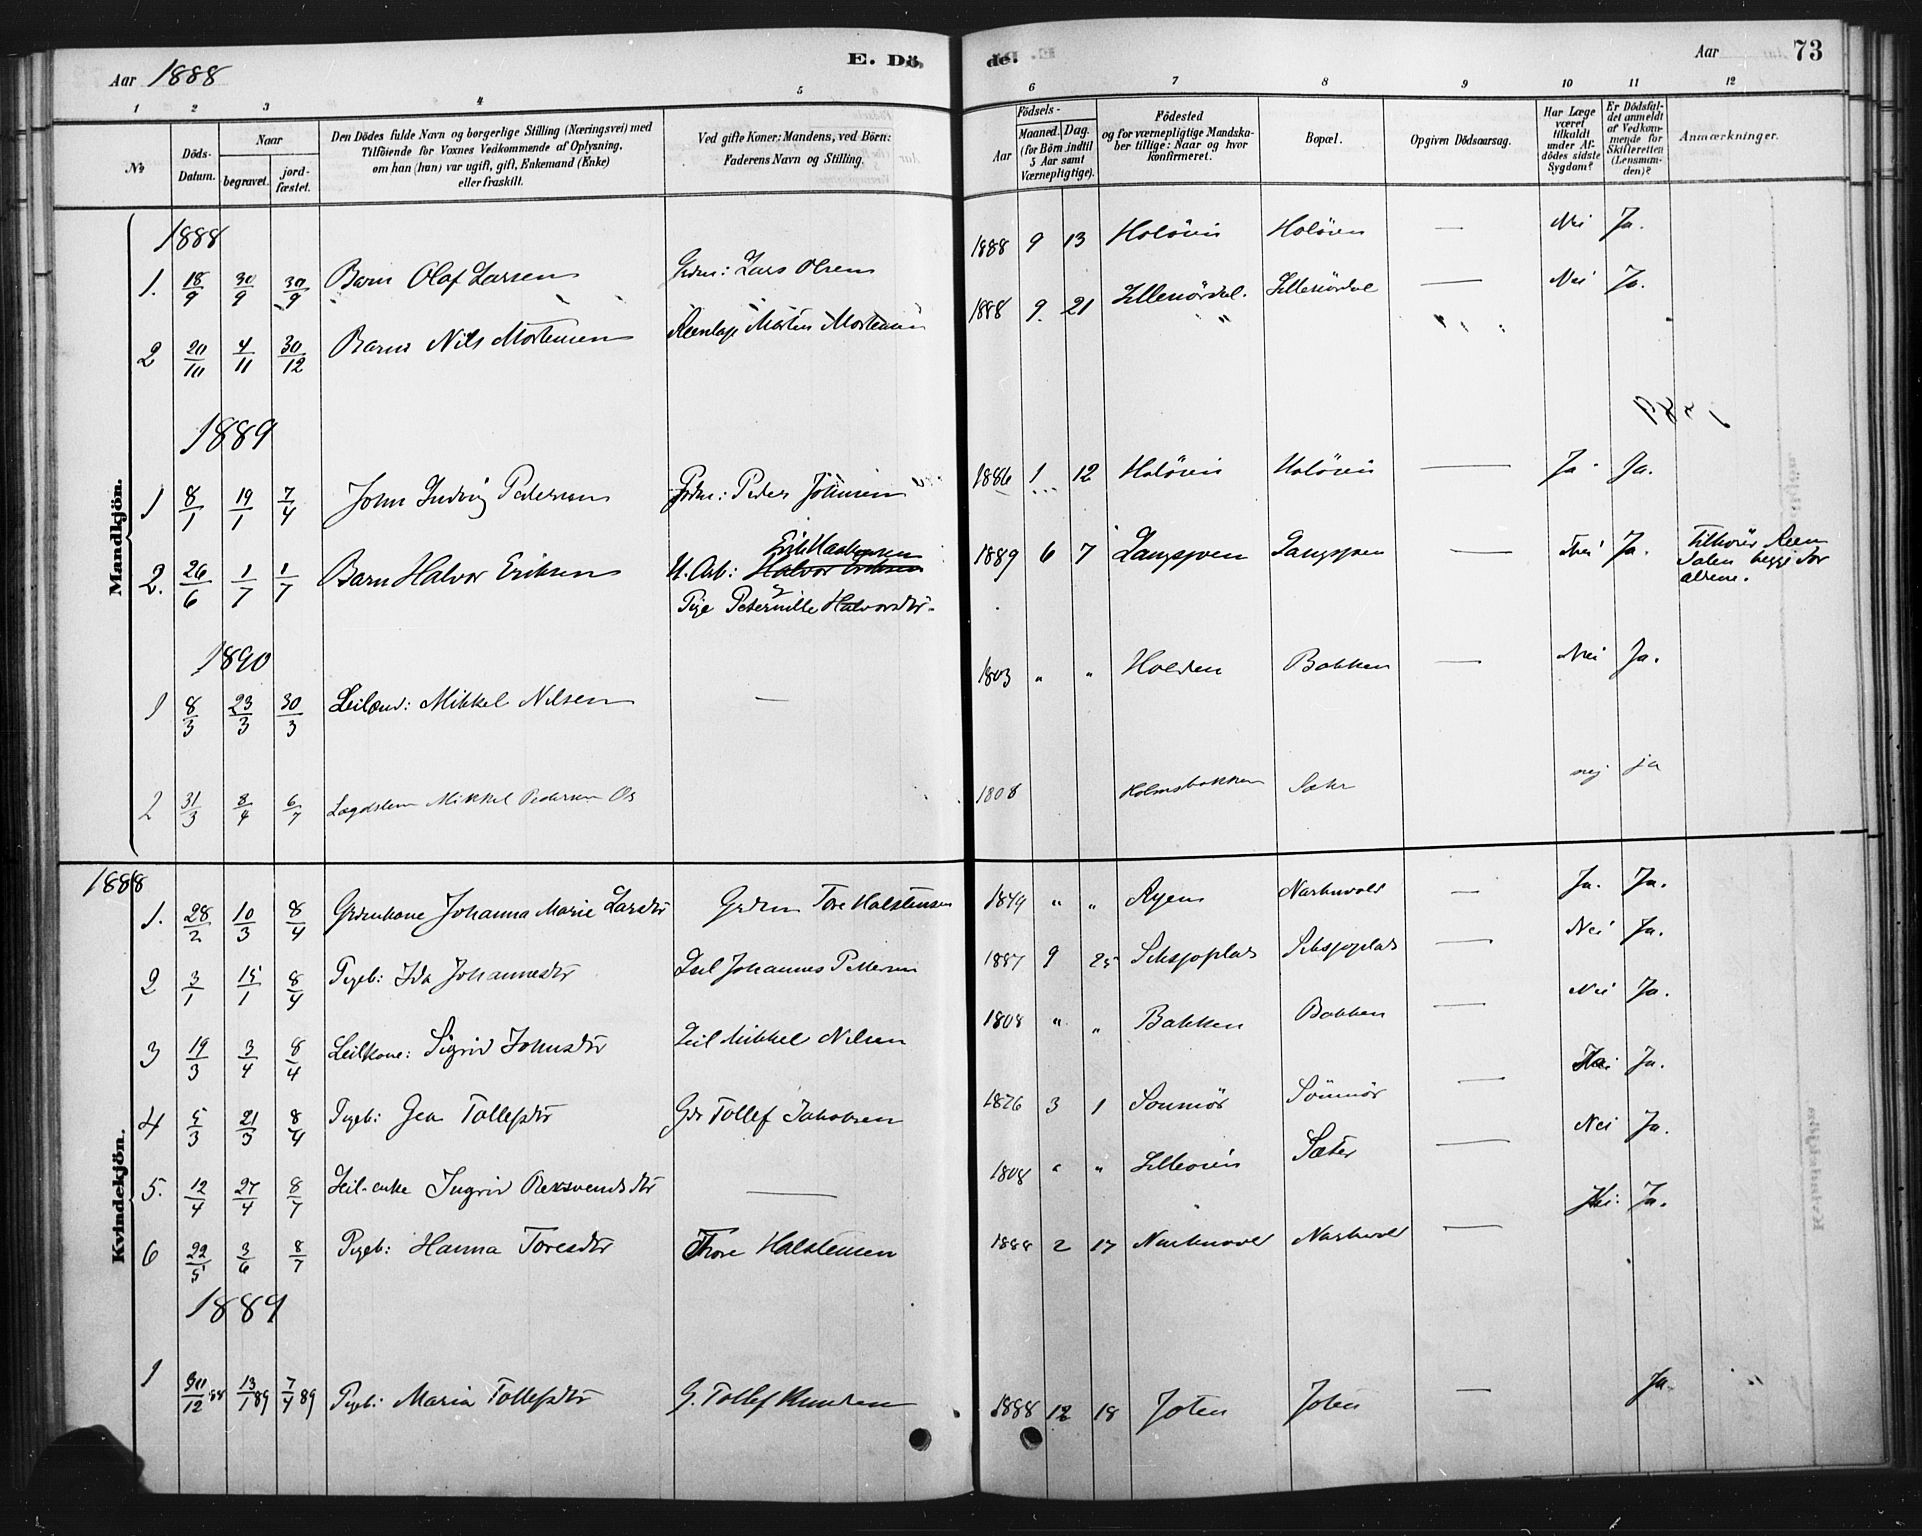 Aar 1888
E. Dö
de.
Aar
73
1 2 3 4 5 6 7 8 9 10 11 12
No
Döds-Datum.
Naar
begravet.
jord-fæstet.
Den Dödes fulde Navn og borgerlige Stilling (Næringsvei) med
Tilföiende for Voxnes Vedkommende af Oplysning,
om han (hun) var ugift, gift, Enkemand (Enke)
eller fraskilt.
Ved gifte Koner: Mandens, ved Börn:
Faderens Navn og Stilling.
Födsels-
Aar
Maaned. Dag.
(for Börn indtil
5 Aar samt
Værnepligtige).
Födested
og for værnepligtige Mandska-
ber tillige: Naar og hvor
konfirmeret.
Bopæl.
Opgiven Dödsaarsag.
Har Læge
været
tilkaldt
under Af-
dödes sidste
Sygdom?
Er Dödsfal-
det anmeldt
af Vedkom-
mende for
Skifteretten
(Lensman-
den)?
Anmærkninger.
Mandkjön.
1888
1. 18/9 30/9 30/9 Barn Olaf Larsen Grdm: Lars Olsen 1888 9 13 Holöien Holöien — Nei Ja.
2 20/10 4/11 30/12 Barn Nils Mortensen Morten Mortensen 1888 9. 21 Lillenördal. Lillenördal — Nei Ja.
1889
1 8/1 19/1 7/4 John Ludvig Pedersen Grdm: Peder Johnsen 1886 1 12 Holöien Holöien — Ja. Ja.
2. 26/6 1/7 1/7 Barn Halvor Eriksen U. Arb: Halvor Eriksen 1889 6 7 Langsjoen Langsjoen — Nei Ja.
Pige Peternille Halvorsdtr.
1890
1 8/3 23/3 30/3 Leilænd: Mikkel Nilsen — 1803 " " Holden Bakken — Nei Ja.
2 31/3 8/4 6/7 Lægdslem Mikkel Pedersen Os 1808 Holmsbakken nej ja
Kvindekjön.
1888
1. 28/2 10/3 8/4 Grdmkone Johanna Marie Larsdtr Grdm Tore Halstensen 1849 " " Ryen Narbuvold — Ja. Ja.
2 3/1 15/1 8/4 Pigeb: Ida Johannesdtr Leil Johannes Pettersen 1887 9 25 — Nei Ja.
3 19/3 3/4 8/4 Leilkone: Sigrid Johnsdtr Leil Mikkel Nilsen 1808 " " Bakken Bakken — Nei Ja.
4 5/3 21/3 8/4 Pigeb: Gea Tollefsdtr Gdr Tollef Jakobsen 3 1 — Ja.
5. 12/4 27/4 8/7 Leil-enke Ingrid — 1808 " " Lilleöien Sæter — Nei Ja.
6 22/5 3/6 8/7 Pigeb: Hanna Toresdtr Thore Halstensen 1888 2 17 Narbuvold Narbuvold — Ja.
1889
1 30/12 88 13/1 89 7/4 89 Pigeb: Maria Tollefsdtr G. Tollef Knudsen 1888 12 18 Joten Joten — Ja.